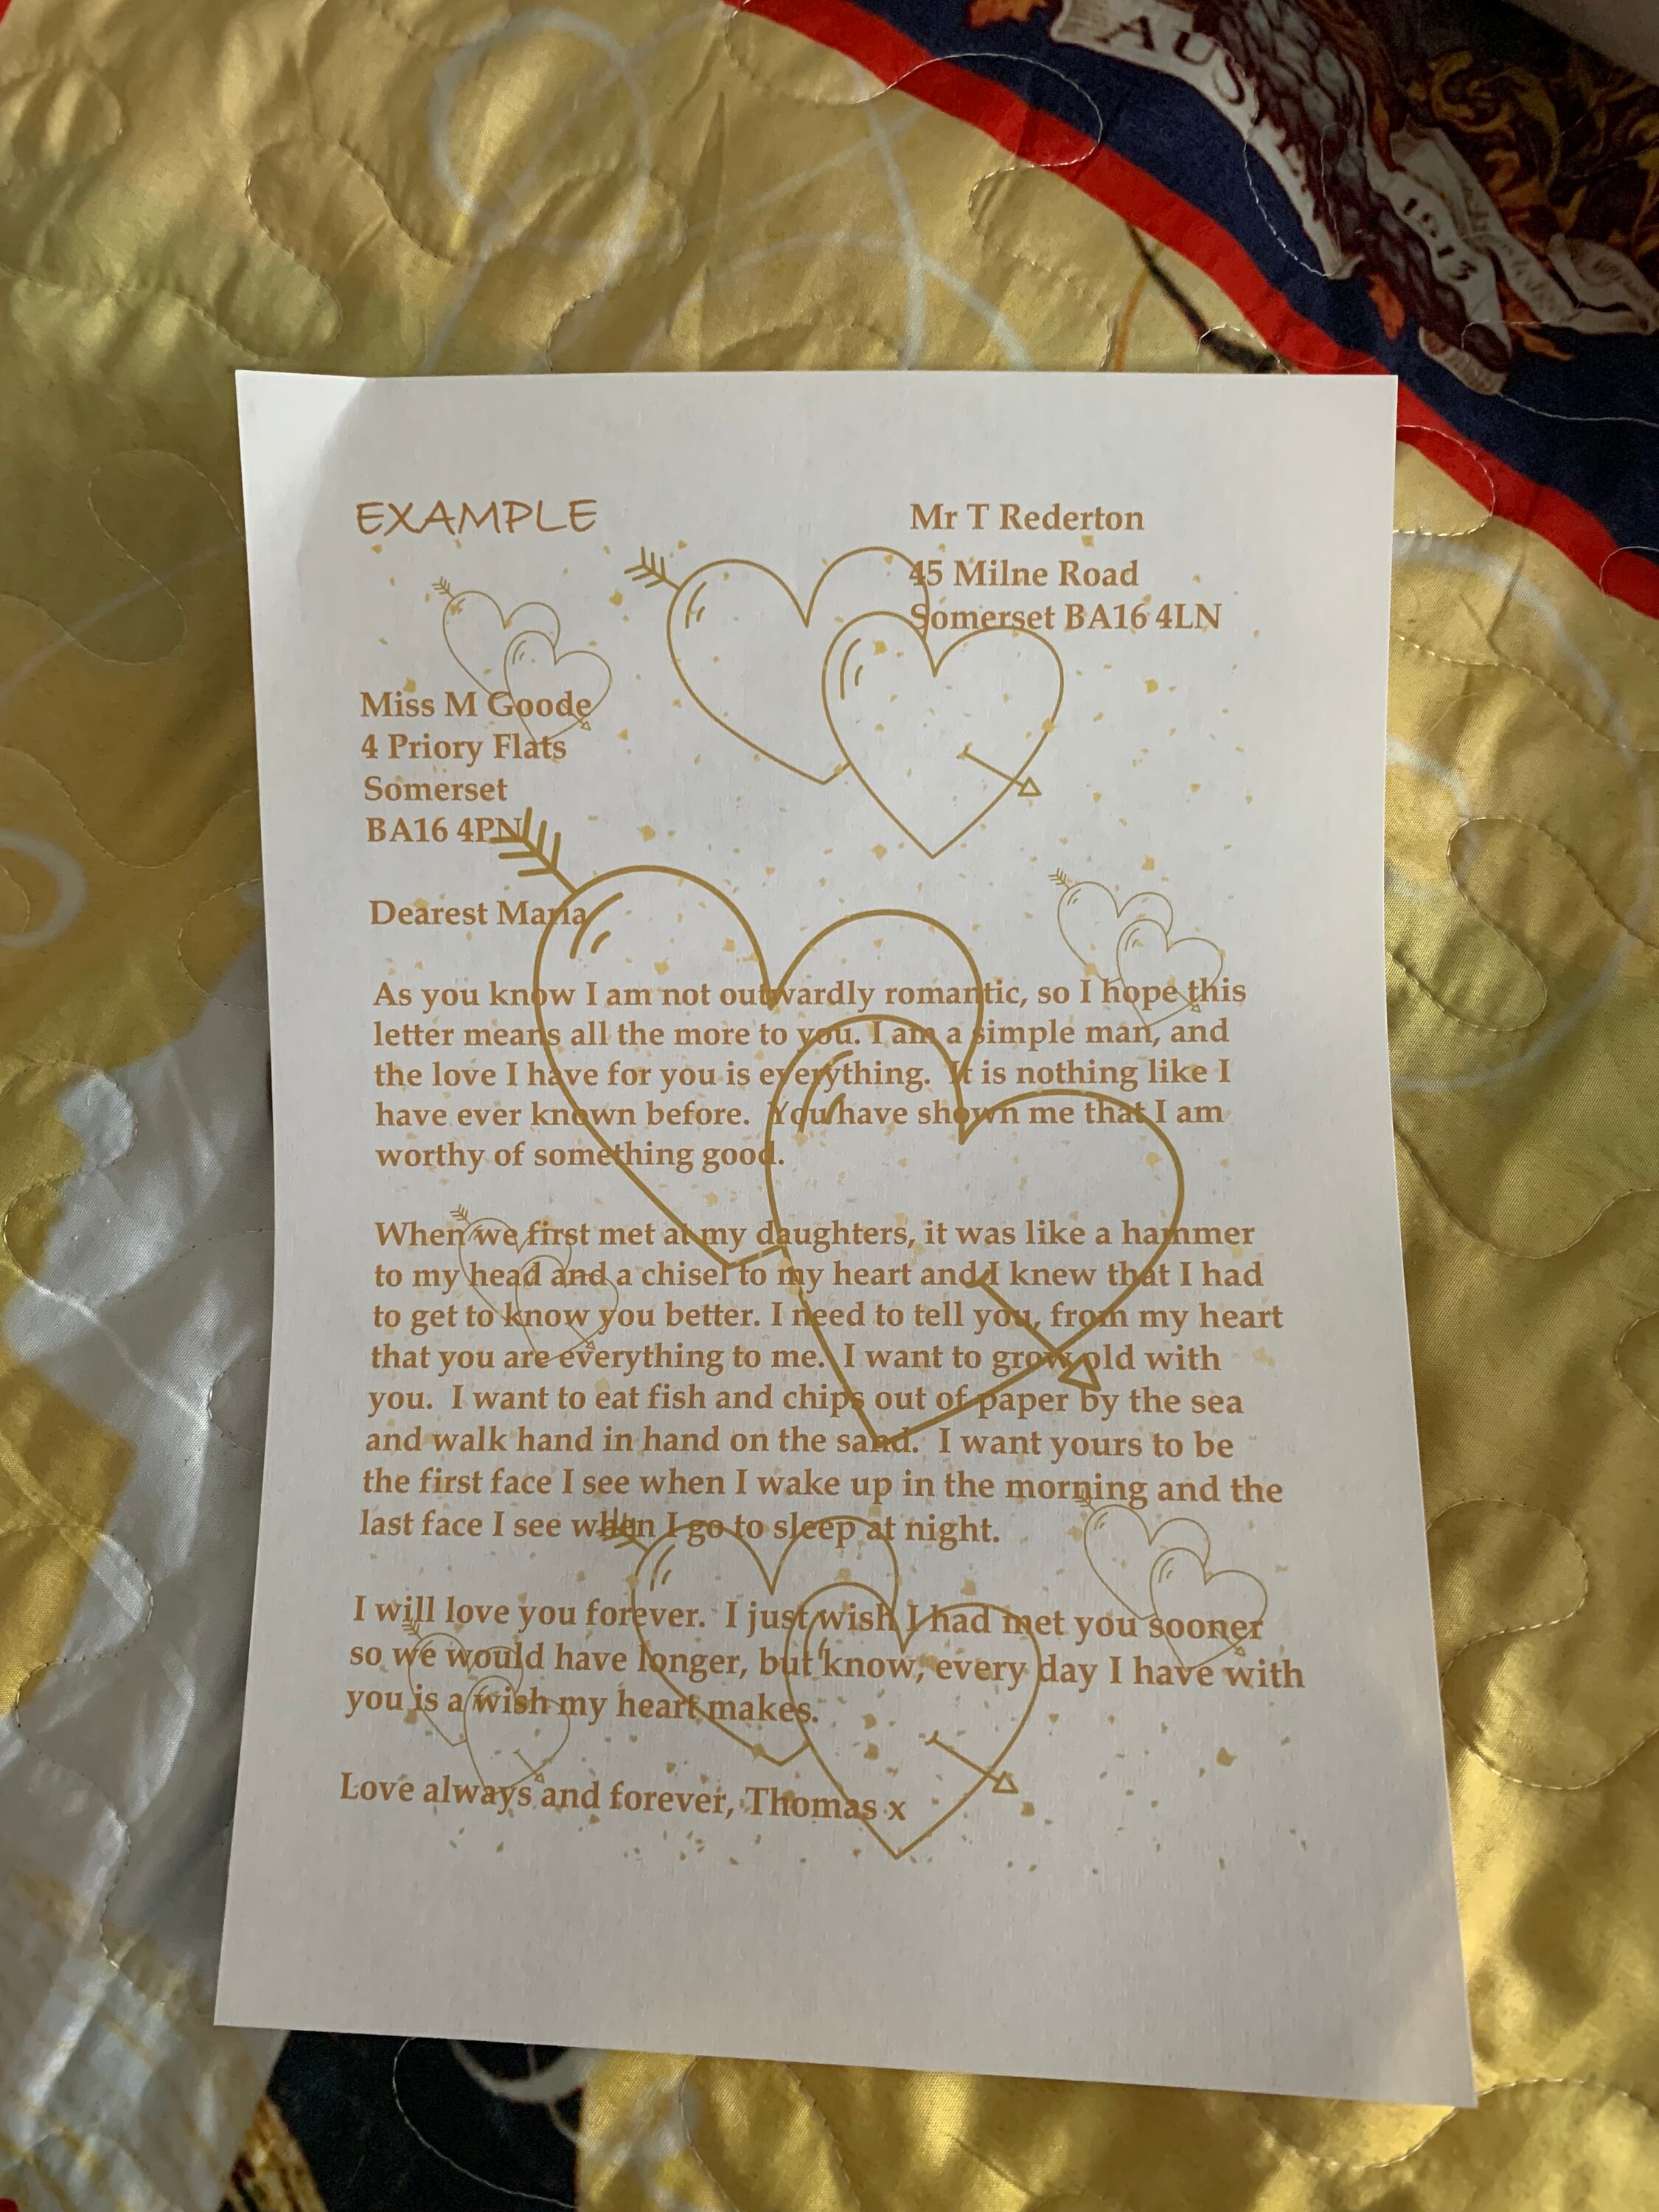 AUS
1813
EXAMPLE
Mr T Rederton
45 Milne Road
Somerset BA16 4LN
Miss M Goode
4 Priory Flats
Somerset
BA16 4PN
Dearest Maria
As you know I am not outwardly romantic, so I hope this
letter means all the more to you. I am a simple man, and
the love I have for you is everything.  It is nothing like I
have ever known before.  You have shown me that I am
worthy of something good.
When we first met at my daughters, it was like a hammer
to my head and a chisel to my heart and I knew that I had
to get to know you better. I need to tell you, from my heart
that you are everything to me.  I want to grow old with
you.  I want to eat fish and chips out of paper by the sea
and walk hand in hand on the sand.  I want yours to be
the first face I see when I wake up in the morning and the
last face I see when I go to sleep at night.
I will love you forever.  I just wish I had met you sooner
so we would have longer, but know, every day I have with
you is a wish my heart makes.
Love always and forever, Thomas x